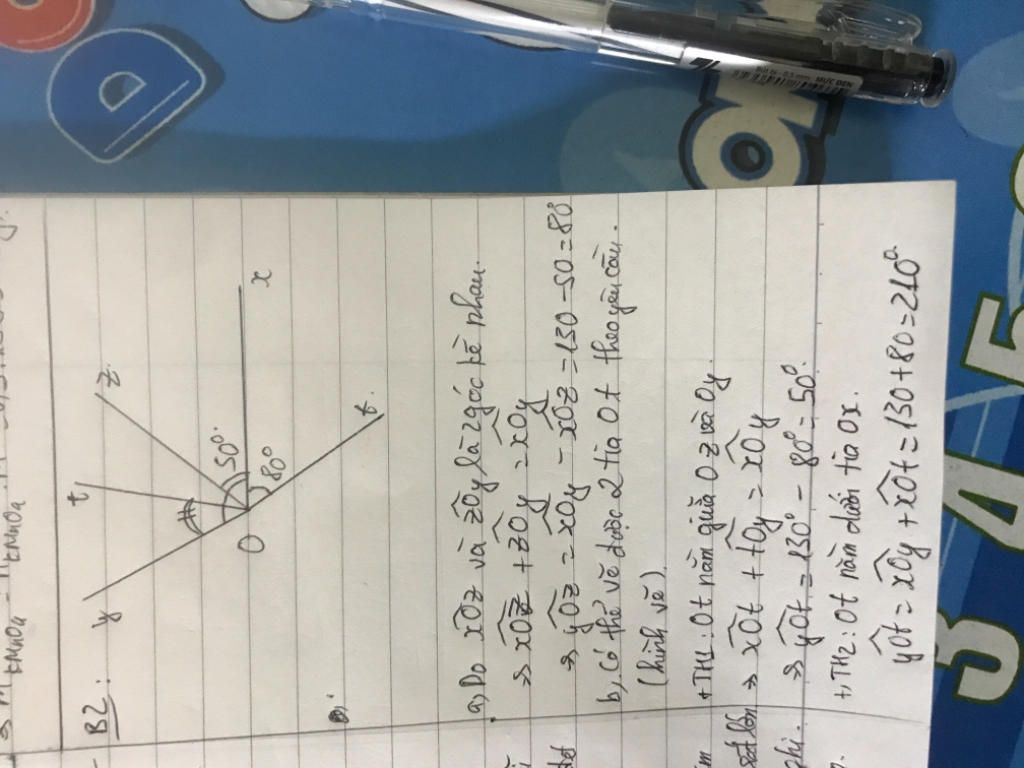 B2:
y
t
z
x
O
50°
80°
t
a, Do xÔz và zÔy là 2 góc kề nhau.
=> xÔz + zÔy = xÔy
=> yÔz = xÔy - xÔz = 130 - 50 = 80°
b, Có thể vẽ được 2 tia Ot theo yêu cầu.
(hình vẽ)
+ TH1: Ot nằm giữa Oz và Oy
=> xÔt + tÔy = xÔy
=> yÔt = 130° - 80° = 50°
+, TH2: Ot nằm dưới tia Ox.
yÔt = xÔy + xÔt = 130 + 80 = 210°
D
a
3 4 5
MỰC ĐEN